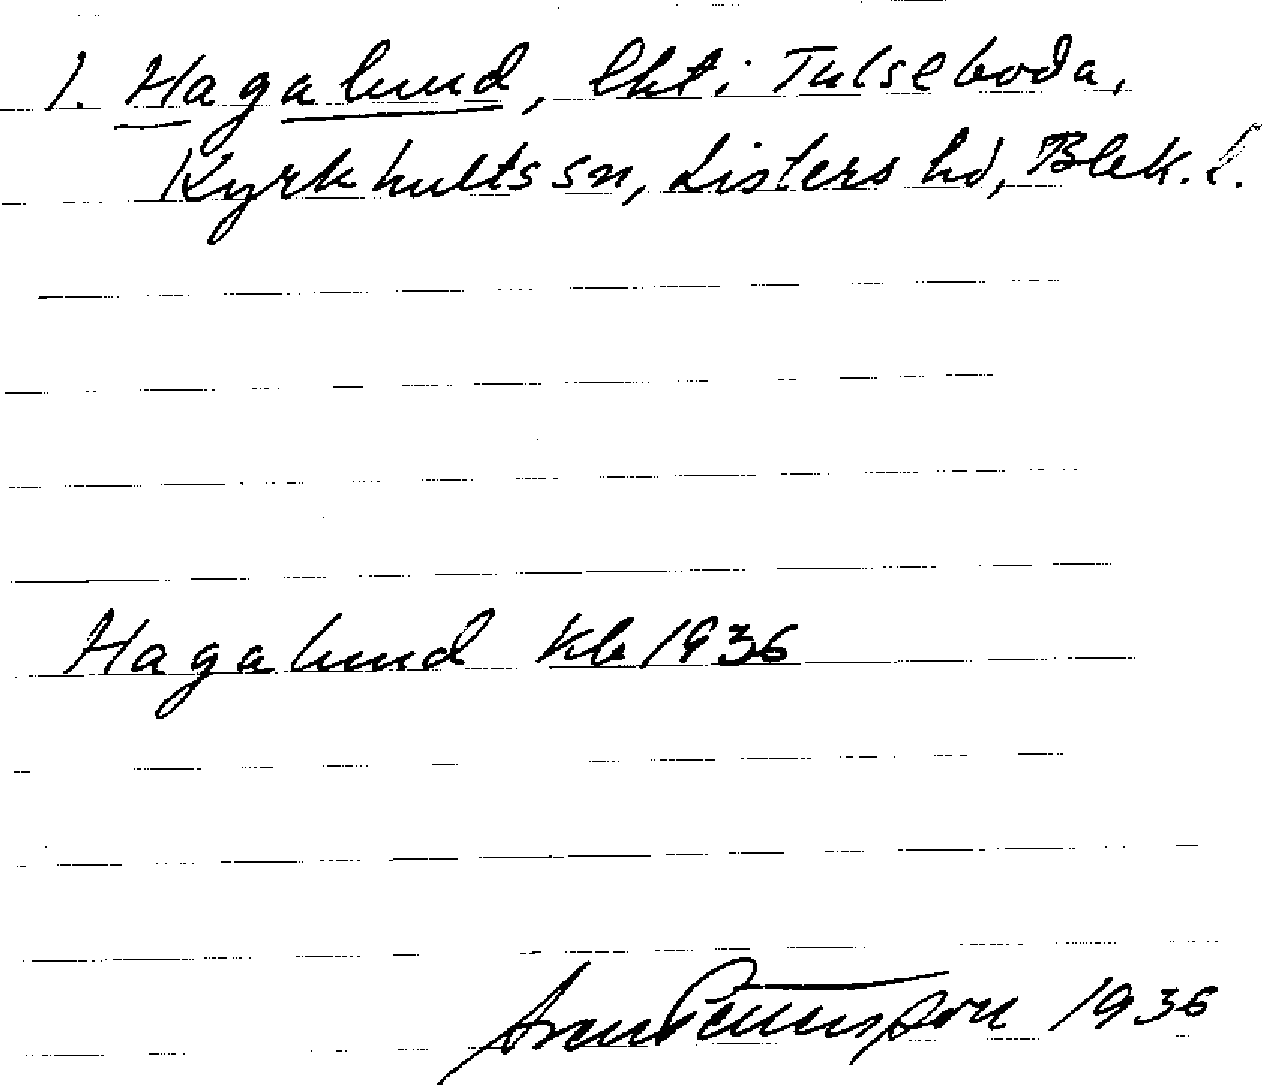 1. Hagalund, lht i Tulseboda,
Kyrkhults sn, Listers hd, Blek. l.
Hagalund Kb 1936
Sven 1936